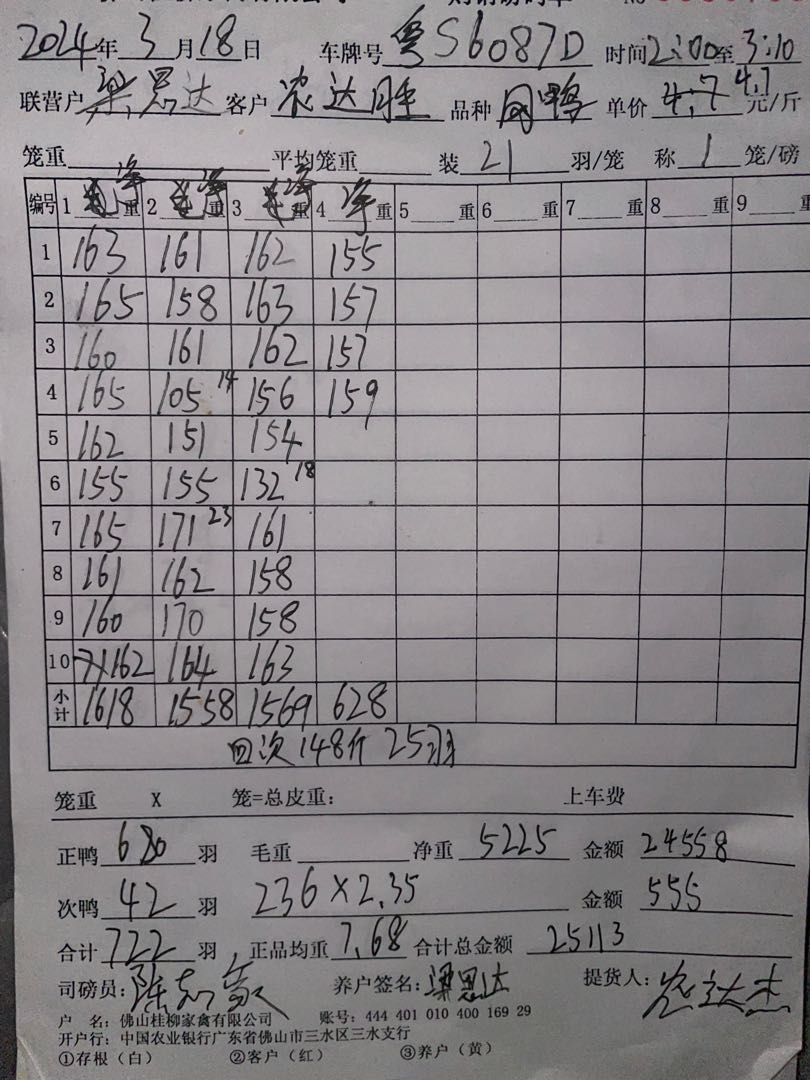 2024年3月18日 车牌号 粤S6087D 时间2:00至3:10
联营户 梁思达 客户 农达胜 品种 图鸭 单价 4.7 4.7 元/斤
笼重 平均笼重 装 21 羽/笼 称 1 笼/磅
编号 1 净重 2 净重 3 净重 4 净重 5 重 6 重 7 重 8 重 9 重
1 163 161 162 155
2 165 158 163 157
3 160 161 162 157
4 165 105 14 156 159
5 162 151 154
6 155 155 132 18
7 165 171 23 161
8 161 162 158
9 160 170 158
10 162 164 163
小计 1618 1558 1569 628
回次148斤 25羽
笼重 X 笼=总皮重: 上车费
正鸭 680 羽 毛重 净重 5225 金额 24558
次鸭 42 羽 236×2.35 金额 555
合计 722 羽 正品均重 7.68 合计总金额 25113
司磅员: 陈志豪 养户签名: 梁思达 提货人: 农达杰
户 名: 佛山桂柳家禽有限公司 账号: 444 401 010 400 169 29
开户行: 中国农业银行广东省佛山市三水区三水支行
①存根（白） ②客户（红） ③养户（黄）